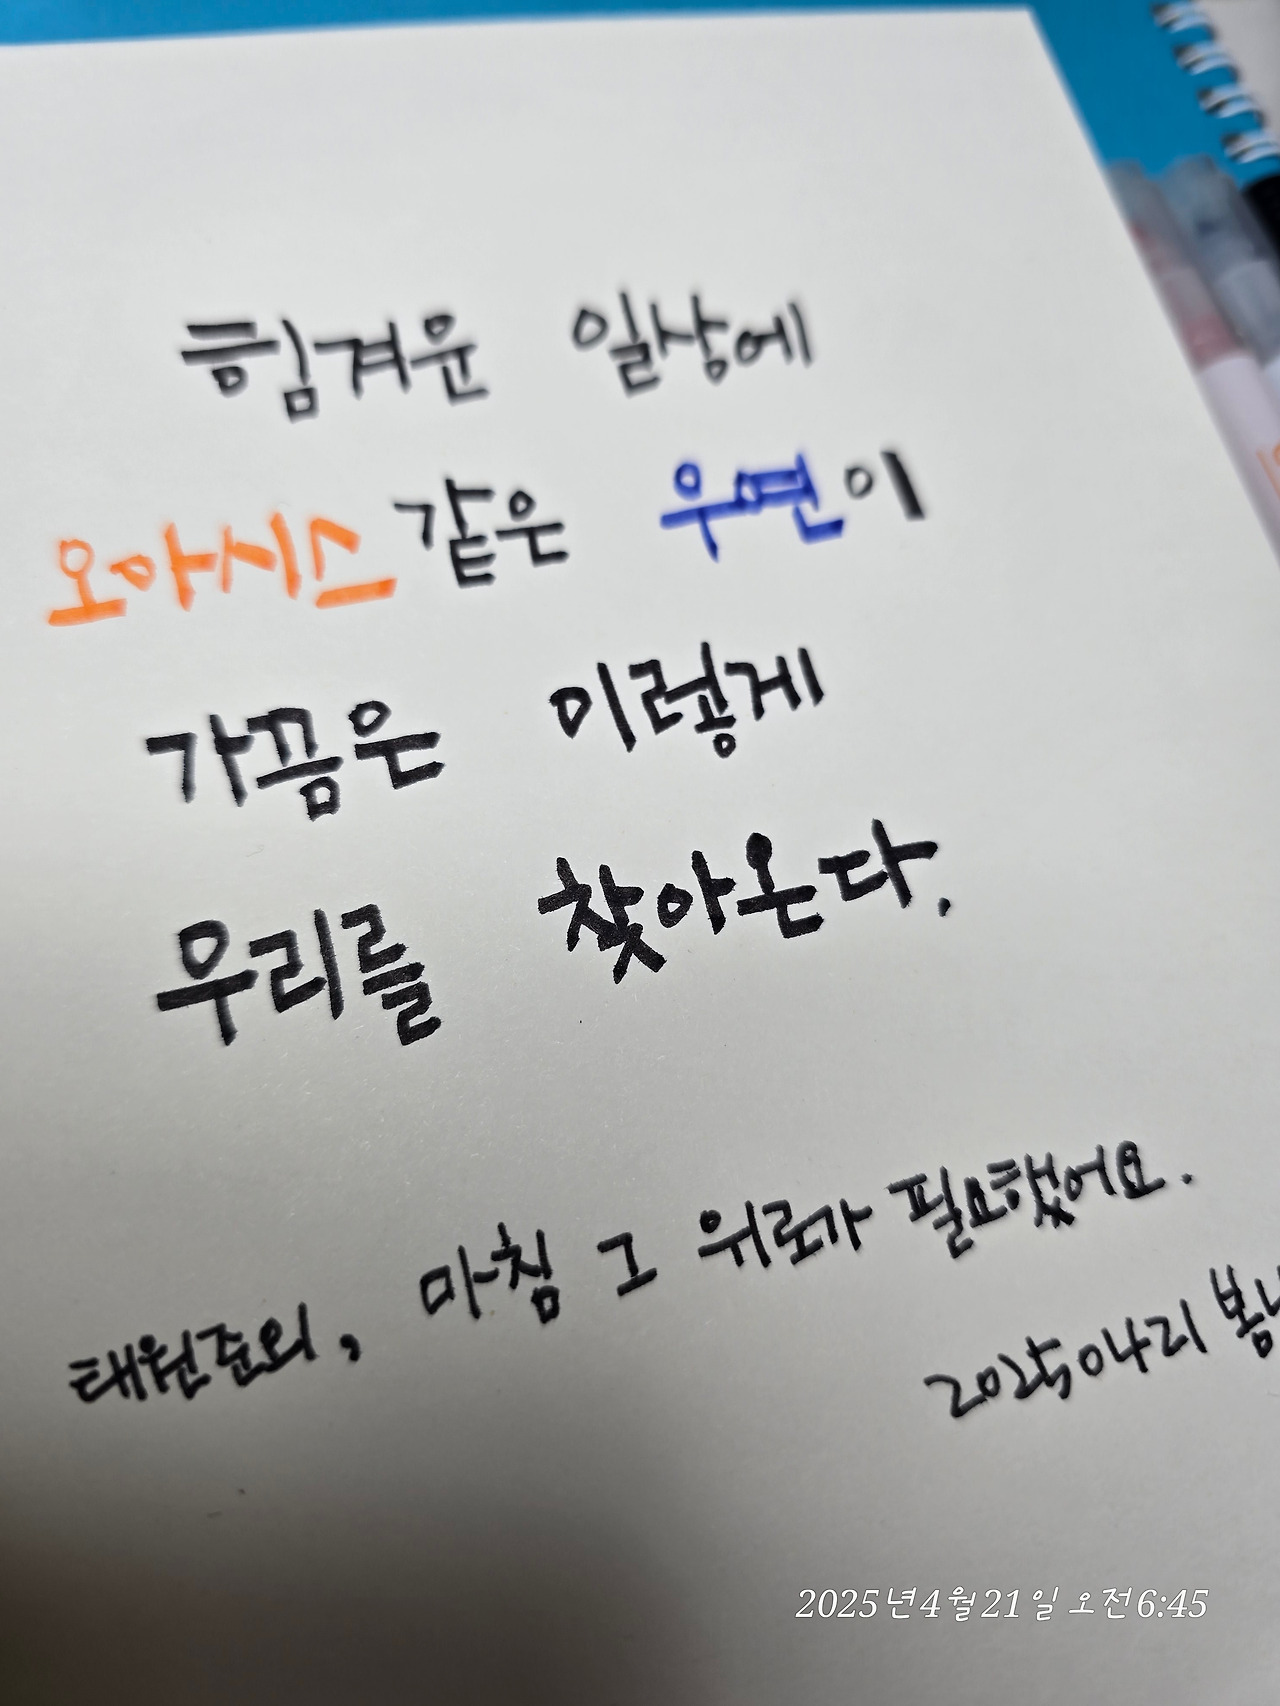 힘겨운 일상에
오아시스 같은 우연이
가끔은 이렇게
우리를 찾아온다.
태원준외, 마침 그 위로가 필요했어요.
20250421 봄
2025년 4월 21일 오전 6:45